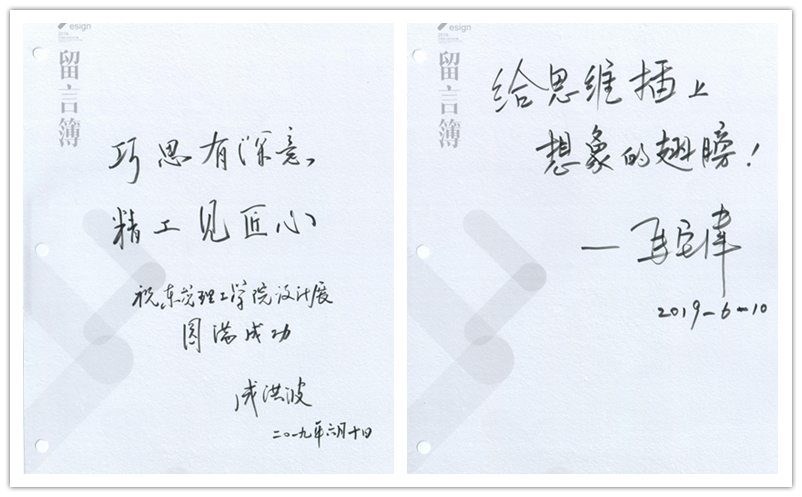 esign
2019
留言簿
巧思有深意,
精工见匠心
祝东莞理工学院设计展
圆满成功
成洪波
二〇一九年六月十日
esign
2019
留言簿
给思维插上
想象的翅膀!
2019-6-10